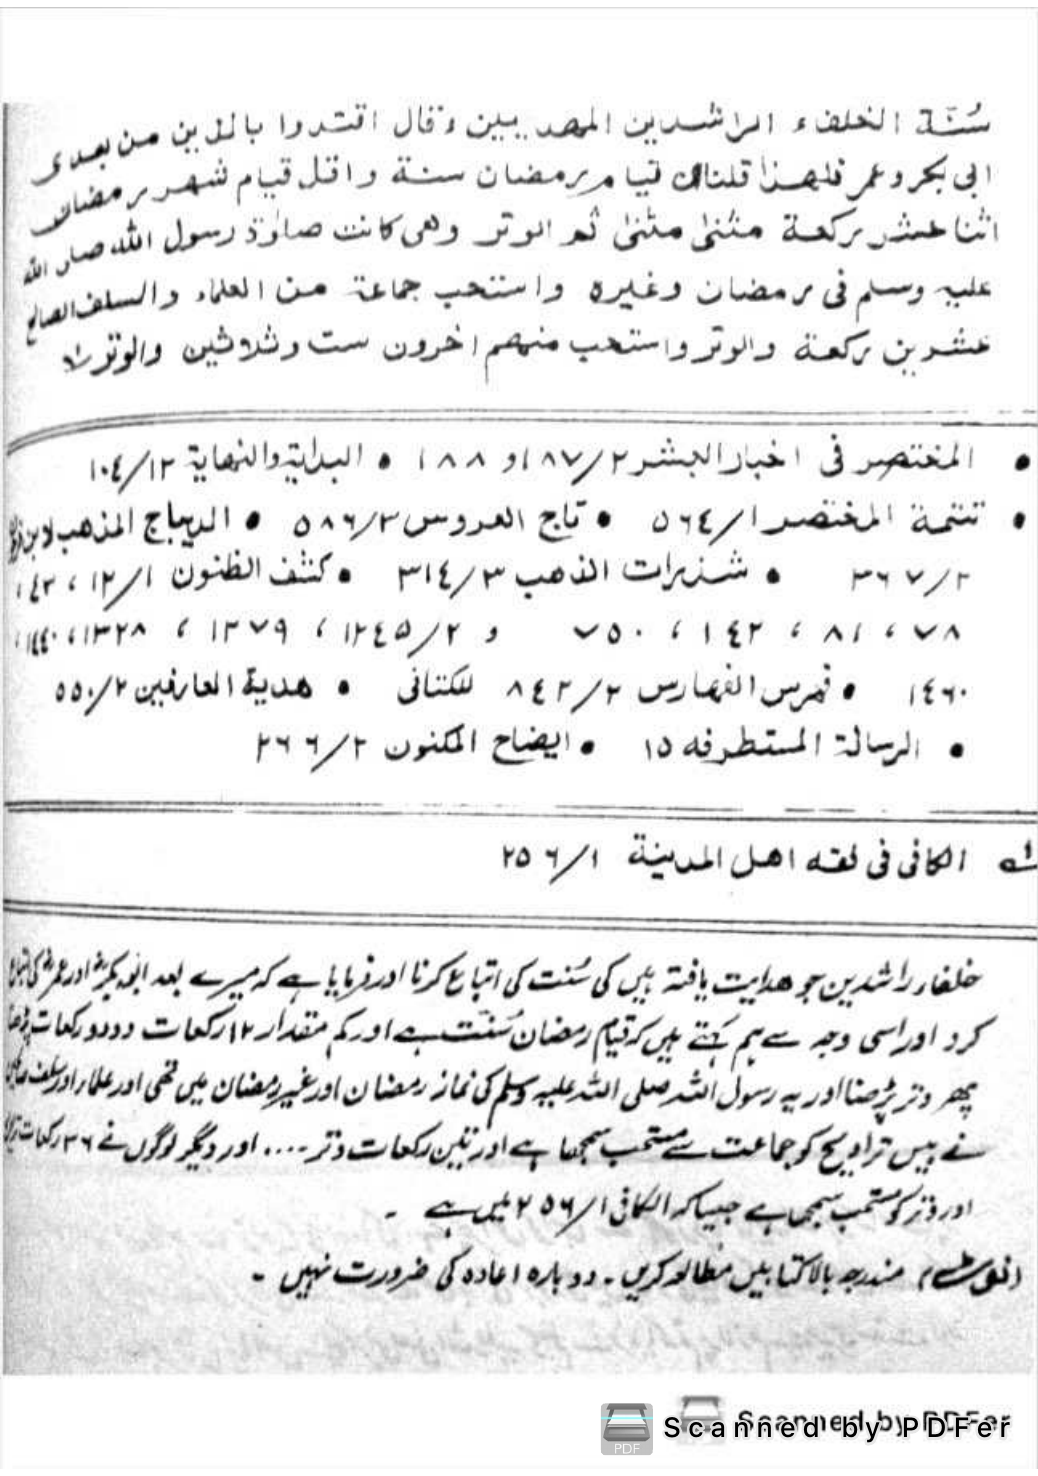 سُنَّة الخلفاء الراشدين المهديين وقال اقتدوا بالذين من بعدى
ابى بكر وعمر فلهذا قلنا ان قيام رمضان سنة واقل قيام شهر رمضان
اثنا عشر ركعة مثنىٰ مثنىٰ ثم الوتر وهى كانت صلوٰة رسول الله صلى الله
عليه وسلم فى رمضان وغيره واستحب جماعة من العلماء والسلف الصالح
عشرين ركعة والوتر واستحب منهم اٰخرون ست وثلاثين والوتر
• المختصر فى اخبار البشر ٢/١٨٧ و ١٨٨ • البداية والنهاية ١٢/١٠٤
• تتمة المختصر ١/٥٦٤ • تاج العروس ٣/٥٨٦ • الديباج المذهب لابن
٢/٣٦٧ • شذرات الذهب ٣/٣١٤ • كشف الظنون ١/١٢ ، ٤٣ ،
٧٨ ، ٨١ ، ١٤٢ ، ٧٥٠ و ٢/١٢٤٥ ، ١٣٧٩ ، ١٣٢٨ ، ١٤٤٠ ،
١٤٦٠ • فهرس الفهارس ٢/٨٤٢ للكتانى • هدية العارفين ٢/٥٥٠
• الرسالة المستطرفه ١٥ • ايضاح المكنون ٢/٢٦٦
لـه الكافى فى فقه اهل المدينة ١/٢٥٦
خلفاء راشدین جو ھدایت یافتہ ہیں کی سُنت کی اتباع کرنا اور فرمایا ہے کہ میرے بعد ابوبکرؓ اور عمرؓ کی اتباع
کرو اور اسی وجہ سے ہم کہتے ہیں کہ قیام رمضان سُنّت ہے اور کم مقدار ۱۲ رکعات دو دو رکعات پڑھنا
پھر وتر پڑھنا اور یہ رسول اللہ صلی اللہ علیہ وسلم کی نماز رمضان اور غیر رمضان میں تھی اور علماء اور سلف صالحین
نے بیس تراویح کو جماعت سے مستحب سمجھا ہے اور تین رکعات وتر .... اور دیگر لوگوں نے ۳۶ رکعات تراویح
اور وتر کو مستحب سمجھا ہے جیسا کہ الکافی ۱/۲۵۶ میں ہے ۔
مندرجہ بالا کتابیں مطالعہ کریں ۔ دوبارہ اعادہ کی ضرورت نہیں ۔
Scanned by PDFer
Scanned by PDFer
PDF